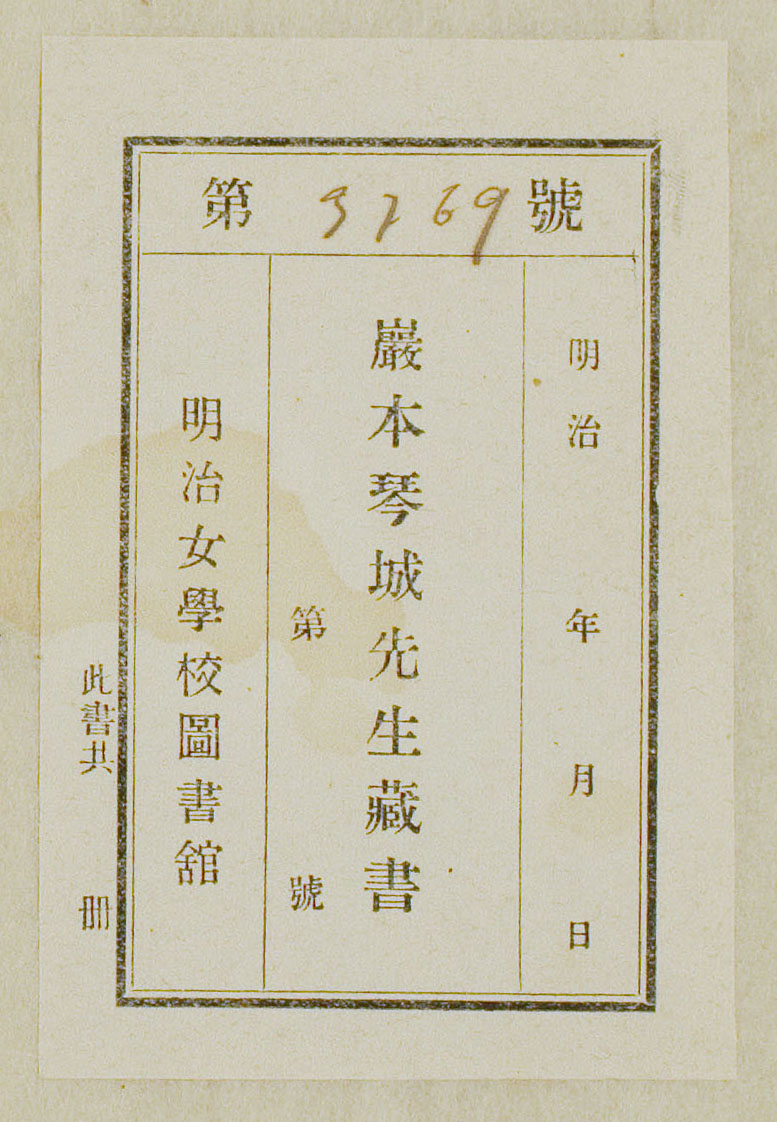 第 3769 號
明治 年 月 日
巖本琴城先生藏書
第 號
明治女學校圖書舘
此書共 冊